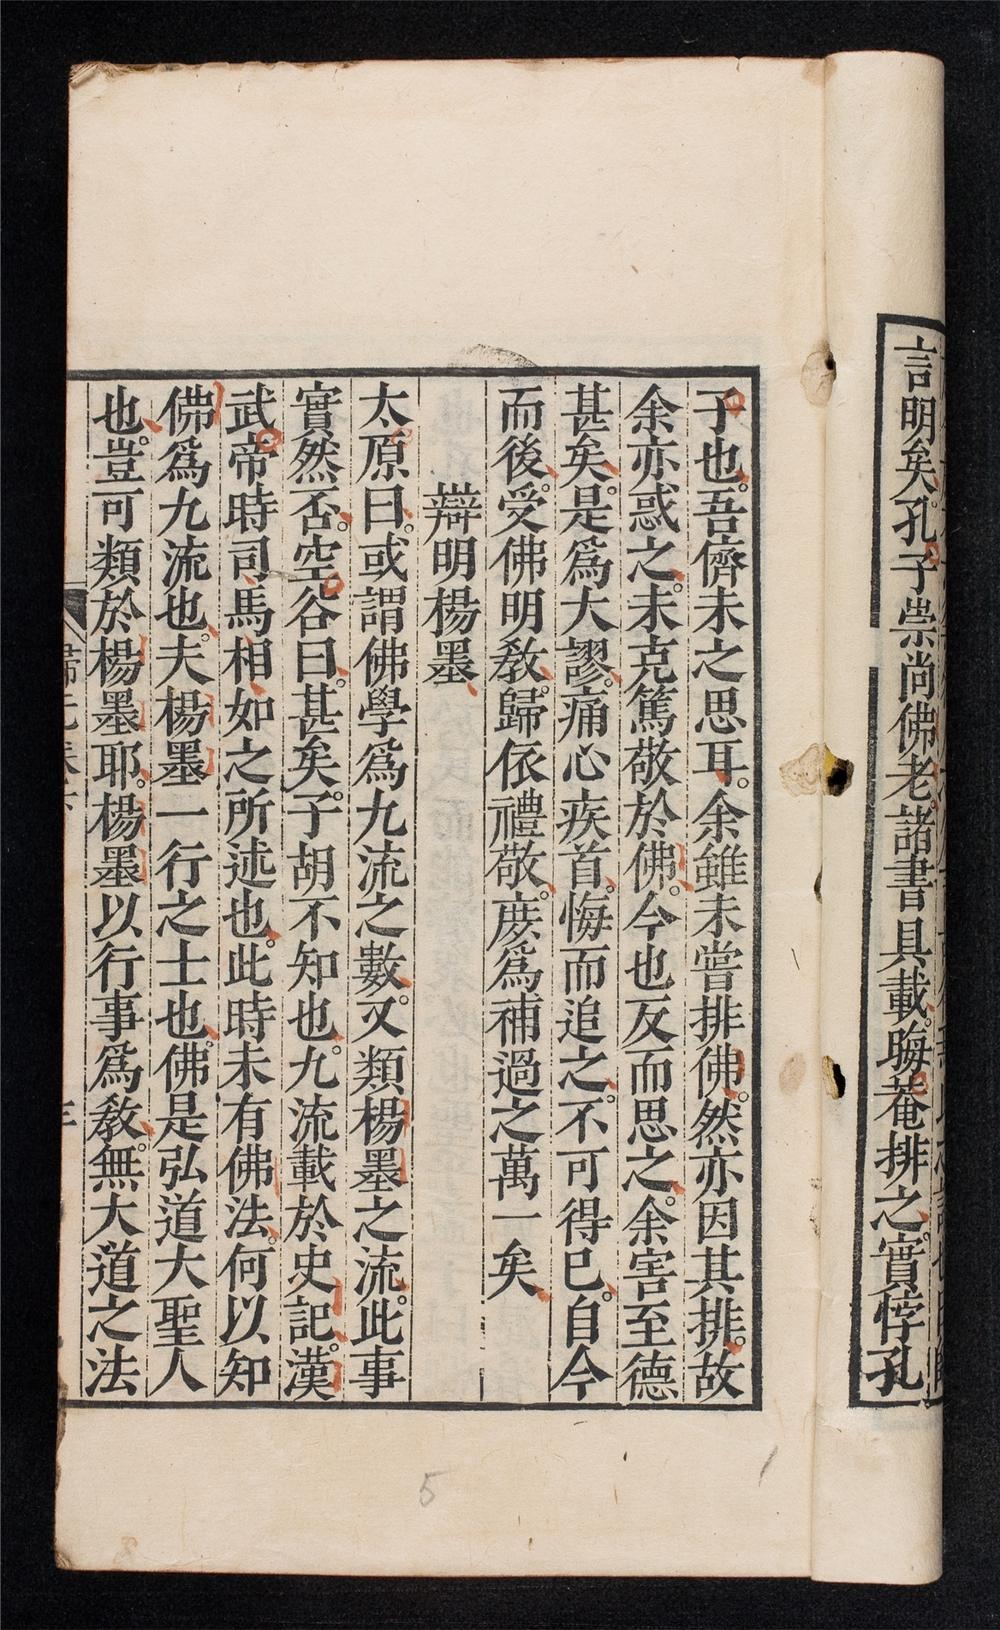 言明矣。孔子崇尚佛老。諸書具載。晦菴排之。實悖孔
子也。吾儕未之思耳。余雖未嘗排佛。然亦因其排。故
余亦惑之。未克篤敬於佛。今也反而思之。余害至德
甚矣。是爲大謬。痛心疾首。悔而追之。不可得已。自今
而後。受佛明教。歸依禮敬。庻爲補過之萬一矣
辯明楊墨
太原曰。或謂佛學爲九流之數。又類楊墨之流。此事
實然否。空谷曰。甚矣。子胡不知也。九流載於史記。漢
武帝時司馬相如之所述也。此時未有佛法。何以知
佛爲九流也。夫楊墨一行之士也。佛是弘道大聖人
也。豈可類於楊墨耶。楊墨以行事爲教。無大道之法
歸元卷下
5